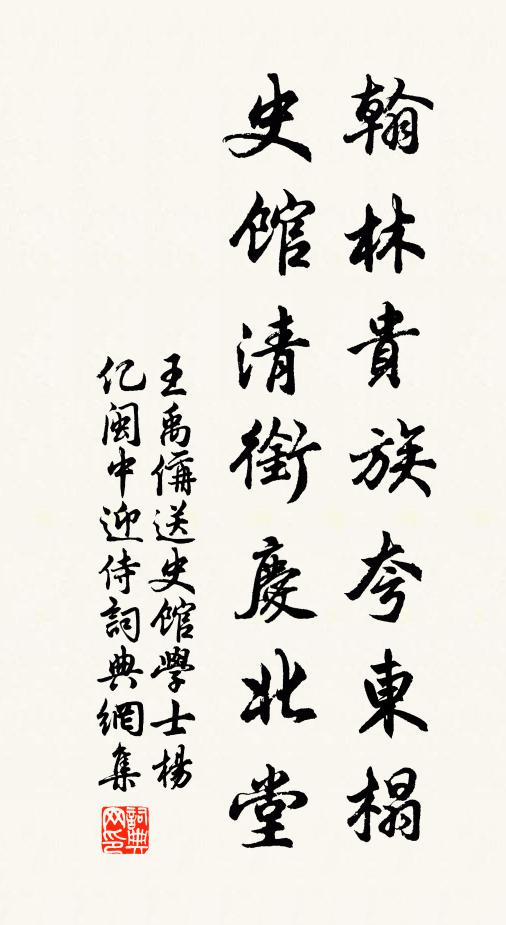 翰林貴族夸東榻
史館清銜慶北堂
王禹偁送史館學士楊
亿闽中迎侍詞典網集
詞典网印